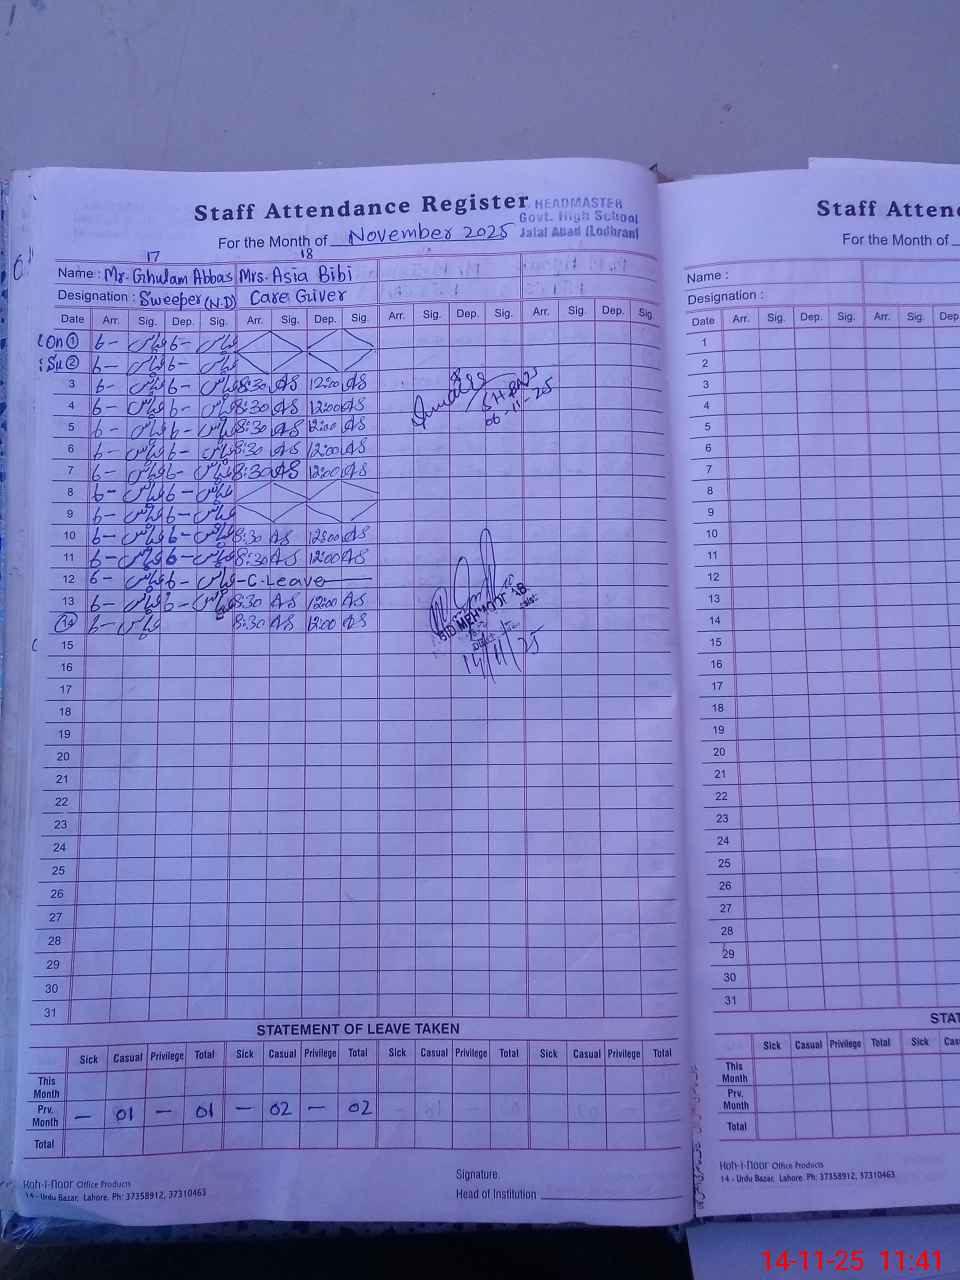 Staff Attendance Register
HEADMASTER
Govt. High School
Jalal Abad (Lodhran)
For the Month of November 2025
17 18
Name : Mr. Ghulam Abbas Mrs. Asia Bibi
Designation : Sweeper (N.D) Care Giver
Date Arr. Sig. Dep. Sig. Arr. Sig. Dep. Sig. Arr. Sig. Dep. Sig. Arr. Sig. Dep. Sig.
1 6- عباس 6- عباس
2 6- عباس 6- عباس
3 6- عباس 6- عباس 8:30 AS 12:00 AS
4 6- عباس 6- عباس 8:30 AS 12:00 AS
5 6- عباس 6- عباس 8:30 AS 12:00 AS
6 6- عباس 6- عباس 8:30 AS 12:00 AS
7 6- عباس 6- عباس 8:30 AS 12:00 AS
8 6- عباس 6- عباس
9 6- عباس 6- عباس
10 6- عباس 6- عباس 8:30 AS 12:00 AS
11 6- عباس 6- عباس 8:30 AS 12:00 AS
12 6- عباس 6- عباس -C-Leave
13 6- عباس 6- عباس 8:30 AS 12:00 AS
14 6- عباس 8:30 AS 12:00 AS
15
16
17
18
19
20
21
22
23
24
25
26
27
28
29
30
31
06-11-25
14/11/25
STATEMENT OF LEAVE TAKEN
Sick Casual Privilege Total Sick Casual Privilege Total Sick Casual Privilege Total Sick Casual Privilege Total
This Month
Prv. Month - 01 - 01 - 02 - 02
Total
Signature.
Head of Institution
Koh-i-Noor Office Products
14 - Urdu Bazar, Lahore. Ph: 37358912, 37310463
Staff Atten
For the Month of
Name :
Designation :
Date Arr. Sig. Dep. Sig. Arr. Sig.
1
2
3
4
5
6
7
8
9
10
11
12
13
14
15
16
17
18
19
20
21
22
23
24
25
26
27
28
29
30
31
STAT
Sick Casual Privilege Total Sick Cas
This Month
Prv. Month
Total
Koh-i-Noor Office Products
14 - Urdu Bazar, Lahore. Ph: 37358912, 37310463
14-11-25 11:41